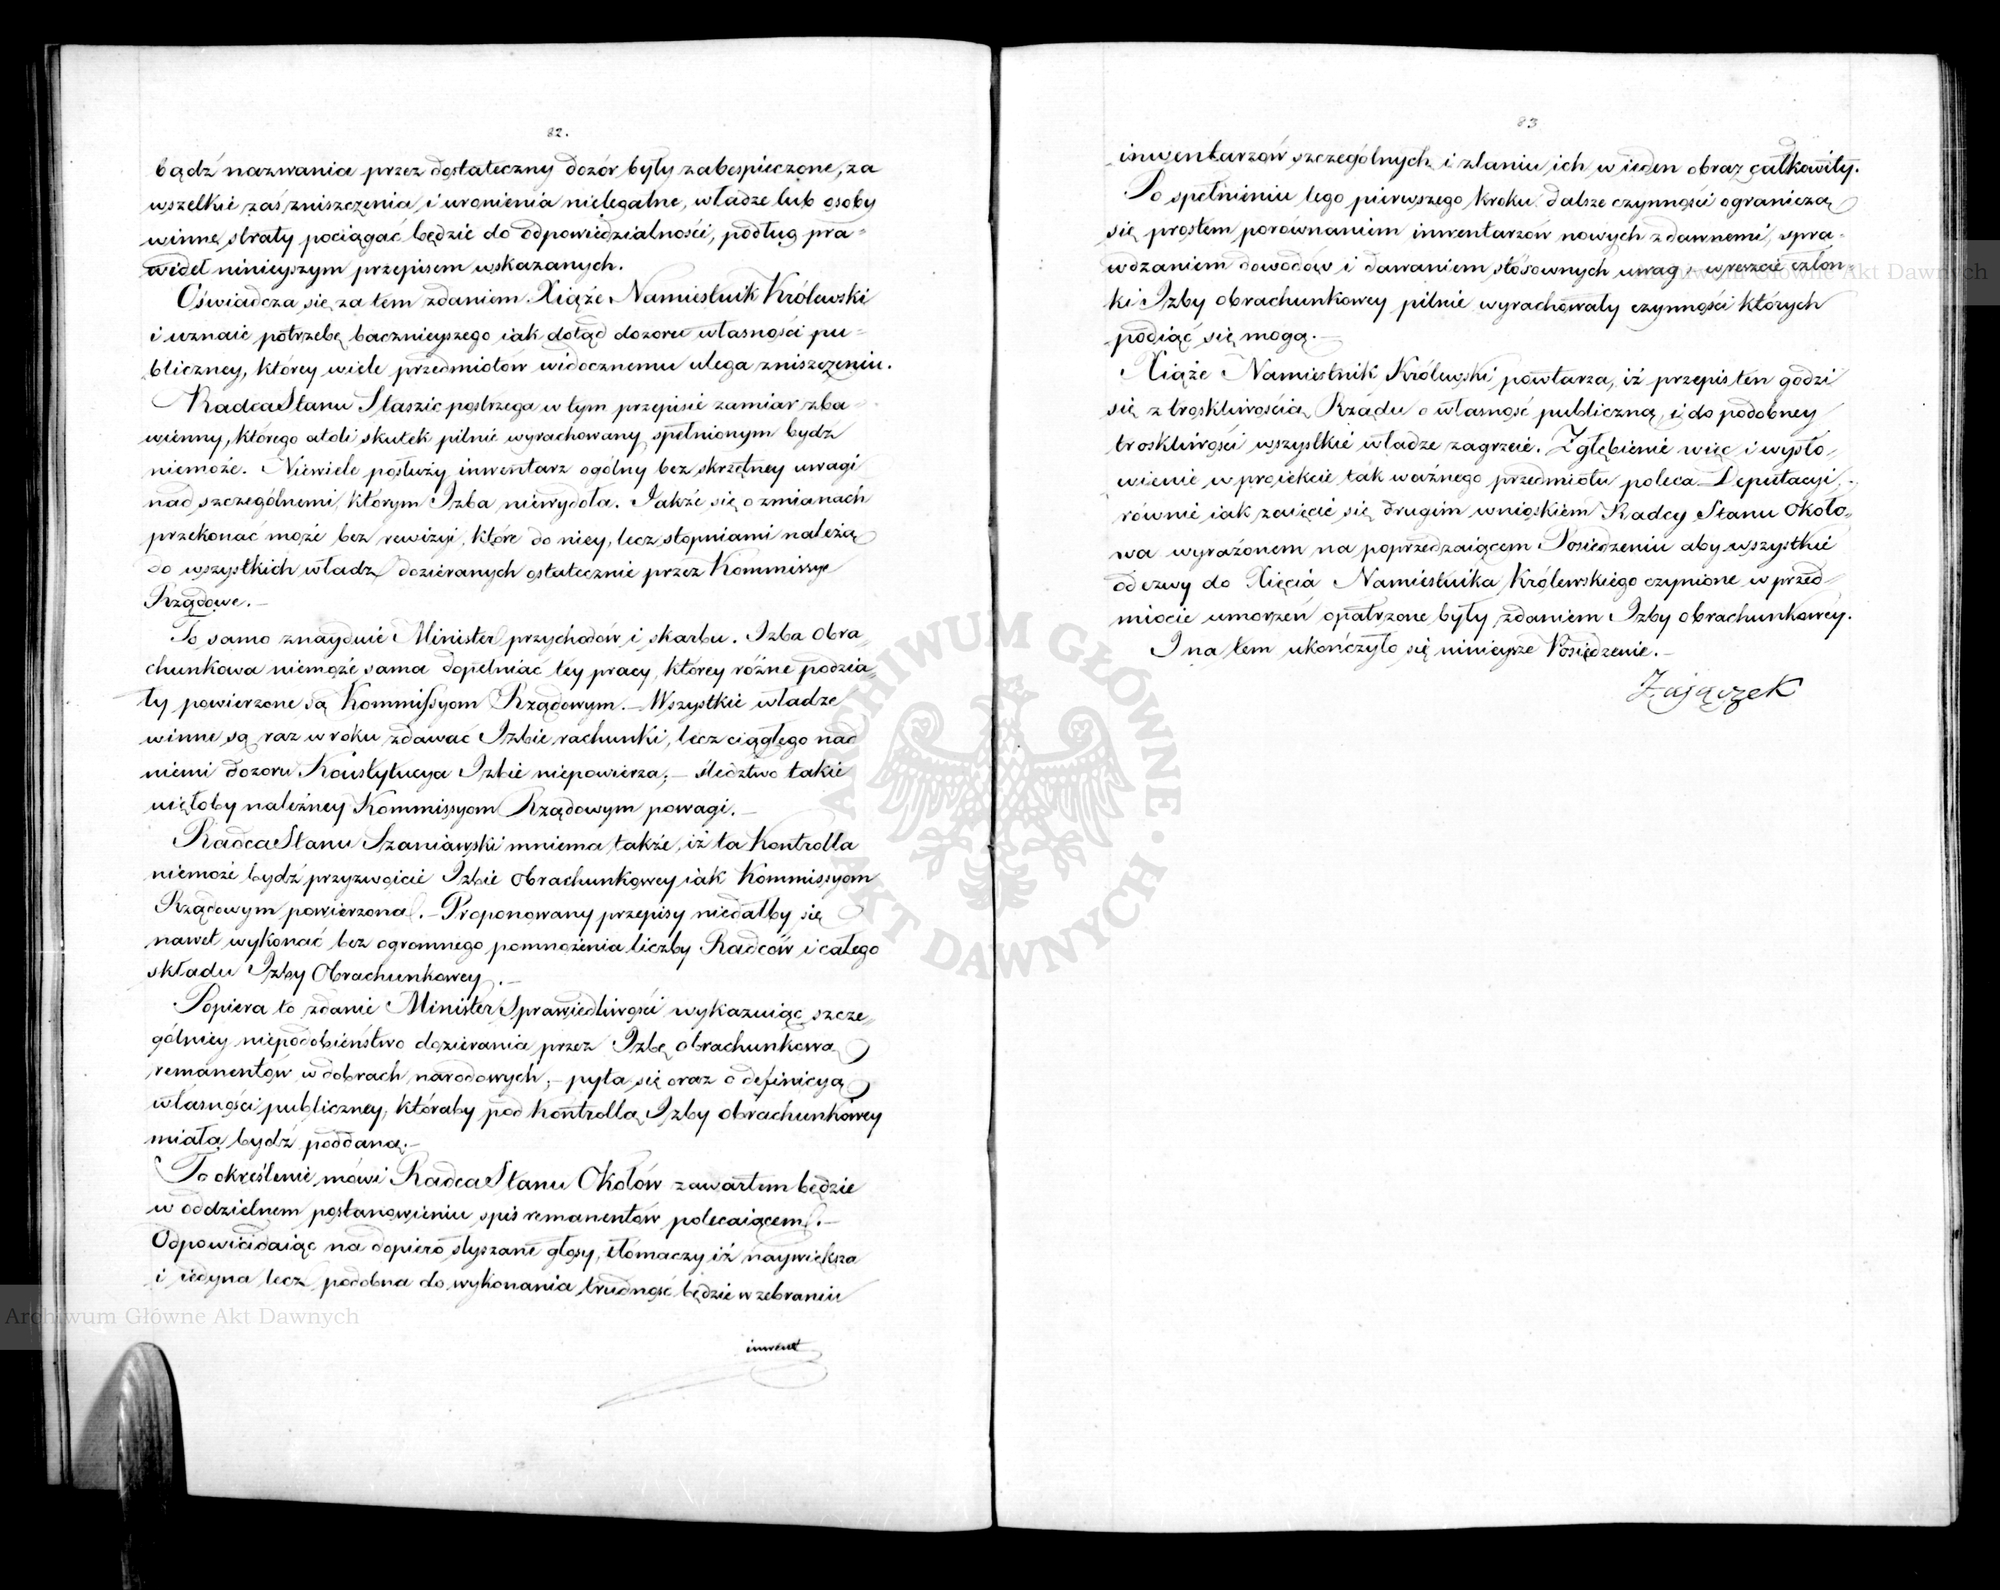 82.
bądź nazwania przez dostateczny dozór były zabespieczone, za
wszelkie zaś zniszczenia i uronienia nielegalne, władze lub osoby
winne straty pociągać będzie do odpowiedzialności, podług pra=
wideł ninieyszym przepisem wskazanych.
Oświadcza się za tem zdaniem Xiąże Namiestnik Królewski
i uznaie potrzebę bacznieyszego iak dotąd dozoru własności pu=
bliczney, którey wiele przedmiotów widocznemu ulega zniszczeniu.
Radca Stanu Staszic postrzega w tym przepisie zamiar zba=
wienny, którego atoli skutek pilnie wyrachowany spełnionym bydz
niemoże. Niewiele posłuży inwentarz ogólny bez skrzętney uwagi
nad szczególnemi, którym Izba niewydoła. Jakże się o zmianach
przekonać może bez rewizyi, które do niey, lecz stopniami należą
do wszystkich władz dozieranych ostatecznie przez Kommissye
Rządowe.—
To samo znayduie Minister przychodów i skarbu. Izba Obra=
chunkowa niemoże sama dopełniać tey pracy, którey różne podzia=
ły powierzone są Kommissyom Rządowym.— Wszystkie władze
winne są raz w roku zdawać Izbie rachunki, lecz ciągłego nad
niemi dozoru Konstytucya Izbie niepowierza;— śledztwo takie
uięłoby należney Kommissyom Rządowym powagi.—
Radca Stanu Szaniawski mniema także, iż ta Kontrolla
niemoże bydź przyzwoicie Izbie Obrachunkowey iak Kommissyom
Rządowym powierzona.— Proponowany przepisy niedałby się
nawet wykonać bez ogromnego pomnożenia liczby Radców i całego
składu Izby Obrachunkowey.—
Popiera to zdanie Minister Sprawiedliwości wykazuiąc szcze=
gólniey niepodobieństwo dozierania przez Izbę obrachunkową
remanentów w dobrach narodowych;— pyta się oraz o definicyą
własności publiczney, któraby pod kontrollą Izby obrachunkowey
miała bydź poddaną.—
To określenie, mówi Radca Stanu Okołów zawartem będzie
w oddzielnem postanowieniu spis remanentów polecaiącem.—
Odpowiedaiąc na dopiero słyszane głosy, tłómaczy iż naywiększa
i iedyna lecz podobna do wykonania trudność będzie w zebraniu
inwent
83
inwentarzów szczególnych i zlaniu ich w ieden obraz całkowity.
Po spełnieniu tego pierwszego kroku dalsze czynności ograniczą
się prostem porównaniem inwentarzów nowych z dawnemi, spra=
wdzaniem dowodów i dawaniem stósownych uwag; wreszcie człon=
ki Izby obrachunkowey pilnie wyrachowały czynności których
podiąć się mogą.—
Xiąże Namiestnik Królewski powtarza, iż przepis ten godzi
się z troskliwością Rządu o własność publiczną, i do podobney
troskliwości wszystkie władze zagrzeie. Zgłębienie więc i wysło=
wienie w proiekcie tak ważnego przedmiotu poleca Deputacyi,
równie iak zaięcie się drugim wnioskiem Radcy Stanu Około=
wa wyrażonem na poprzedzaiącem Posiedzeniu aby wszystkie
odezwy do Xięcia Namiestnika Królewskiego czynione w przed=
miocie umorzeń opatrzone były zdaniem Izby obrachunkowey.
I na tem ukończyło się ninieysze Posiedzenie.—
Zajączek
ARCHIWUM GŁÓWNE AKT DAWNYCH
Archiwum Główne Akt Dawnych
Archiwum Główne Akt Dawnych